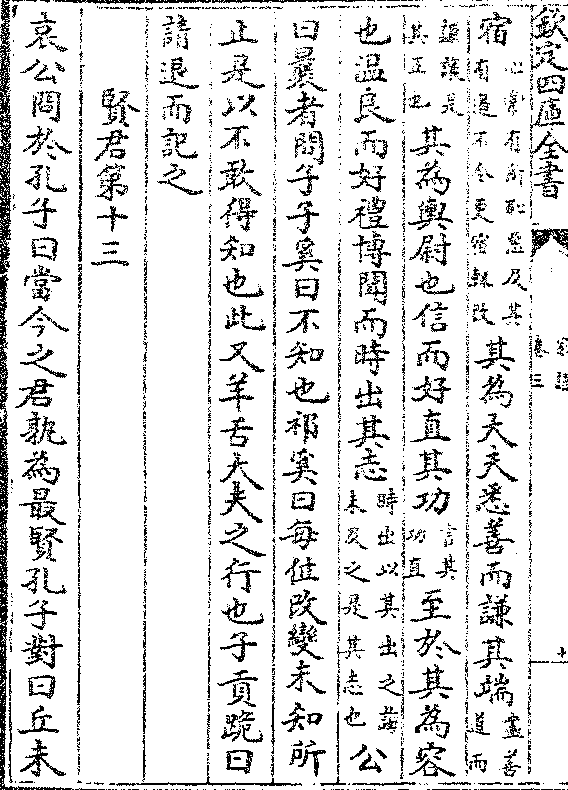 欽定四庫全書 家語 卷三
宿心常有所恥惡及其有過不令更宿輒改其為大夫悉善而謙其端盡善道而
謙讓是其正也其為輿尉也信而好直其功言其功直至於其為容
也温良而好禮博聞而時出其志時出以其出之誨未及之是其志也公
曰曩者問子子奚曰不知也祁奚曰每位改變未知所
止是以不敢得知也此又羊舌大夫之行也子貢跪曰
請退而記之
賢君第十三
哀公問於孔子曰當今之君孰為最賢孔子對曰丘未